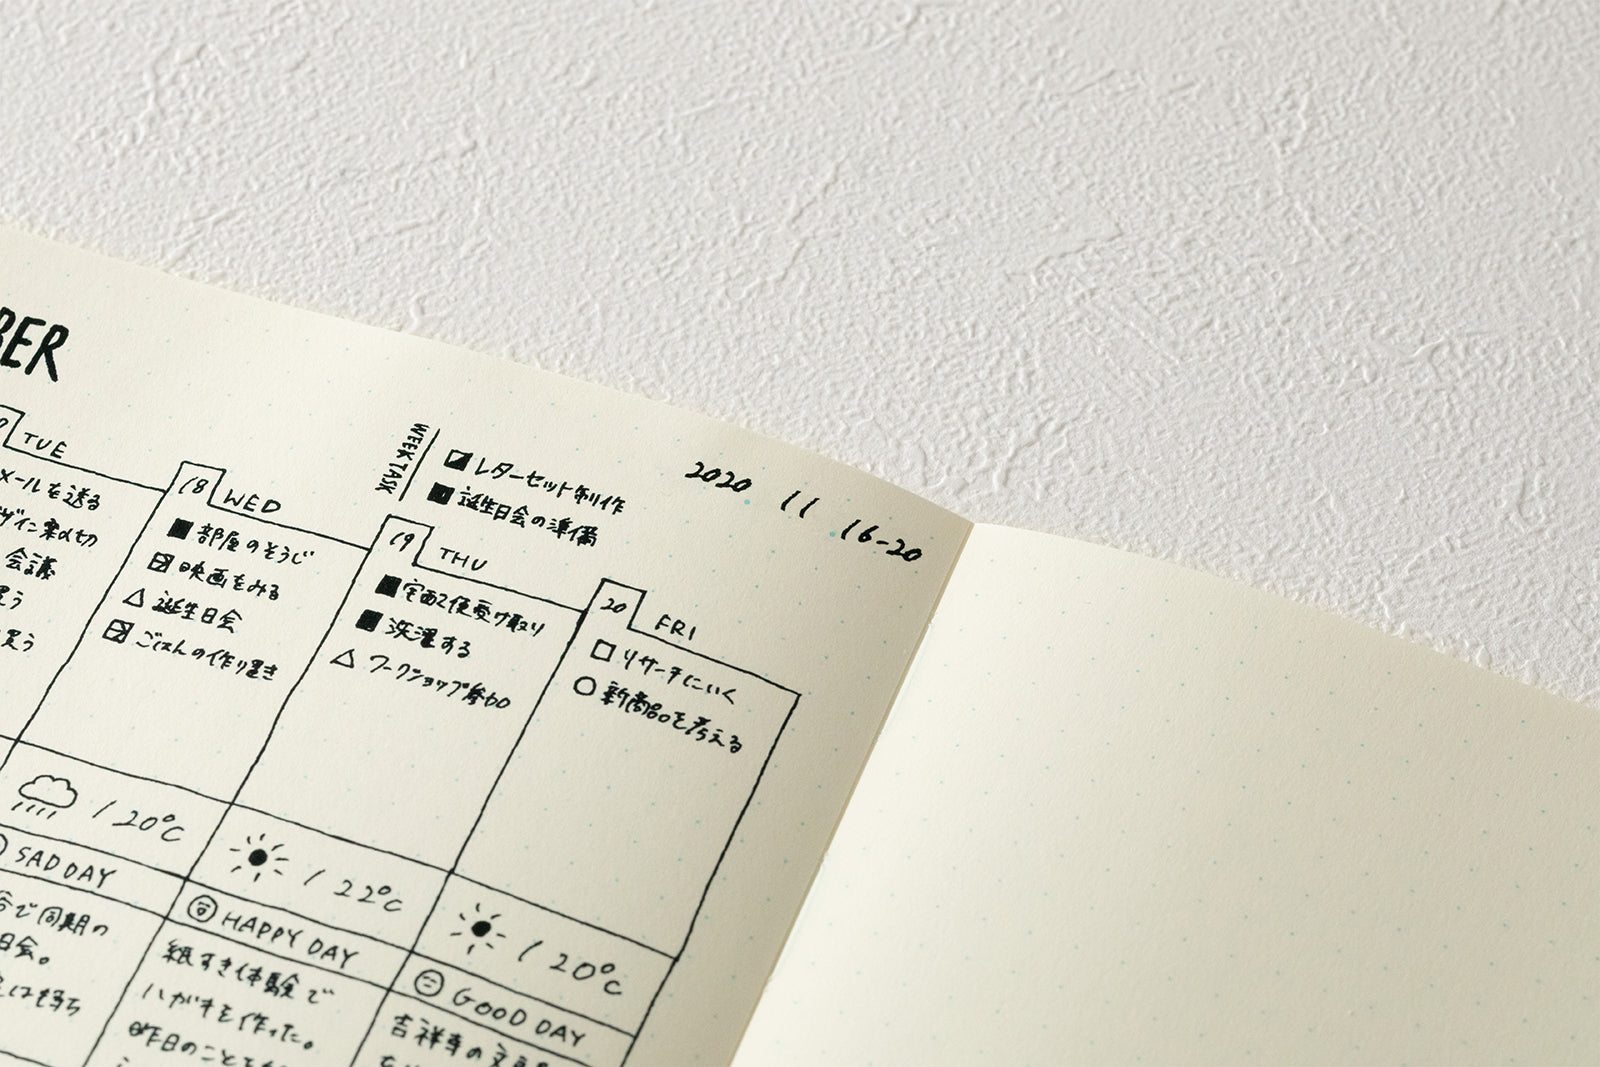 BER
2020 11 16-20
WEEK TASK
レターセット制作
誕生日会の準備
TUE
メールを送る
会議
買う
18 WED
部屋のそうじ
映画をみる
誕生日会
ごはんの作り置き
19 THU
宅配便受け取り
洗濯する
ワークショップ参加
20 FRI
リサーチにいく
新商品を考える
/ 20°C
/ 22°C
/ 20°C
SAD DAY
HAPPY DAY
GOOD DAY
で同期の
日会。
紙すき体験で
ハガキを作った。
昨日のことを
吉祥寺の文具